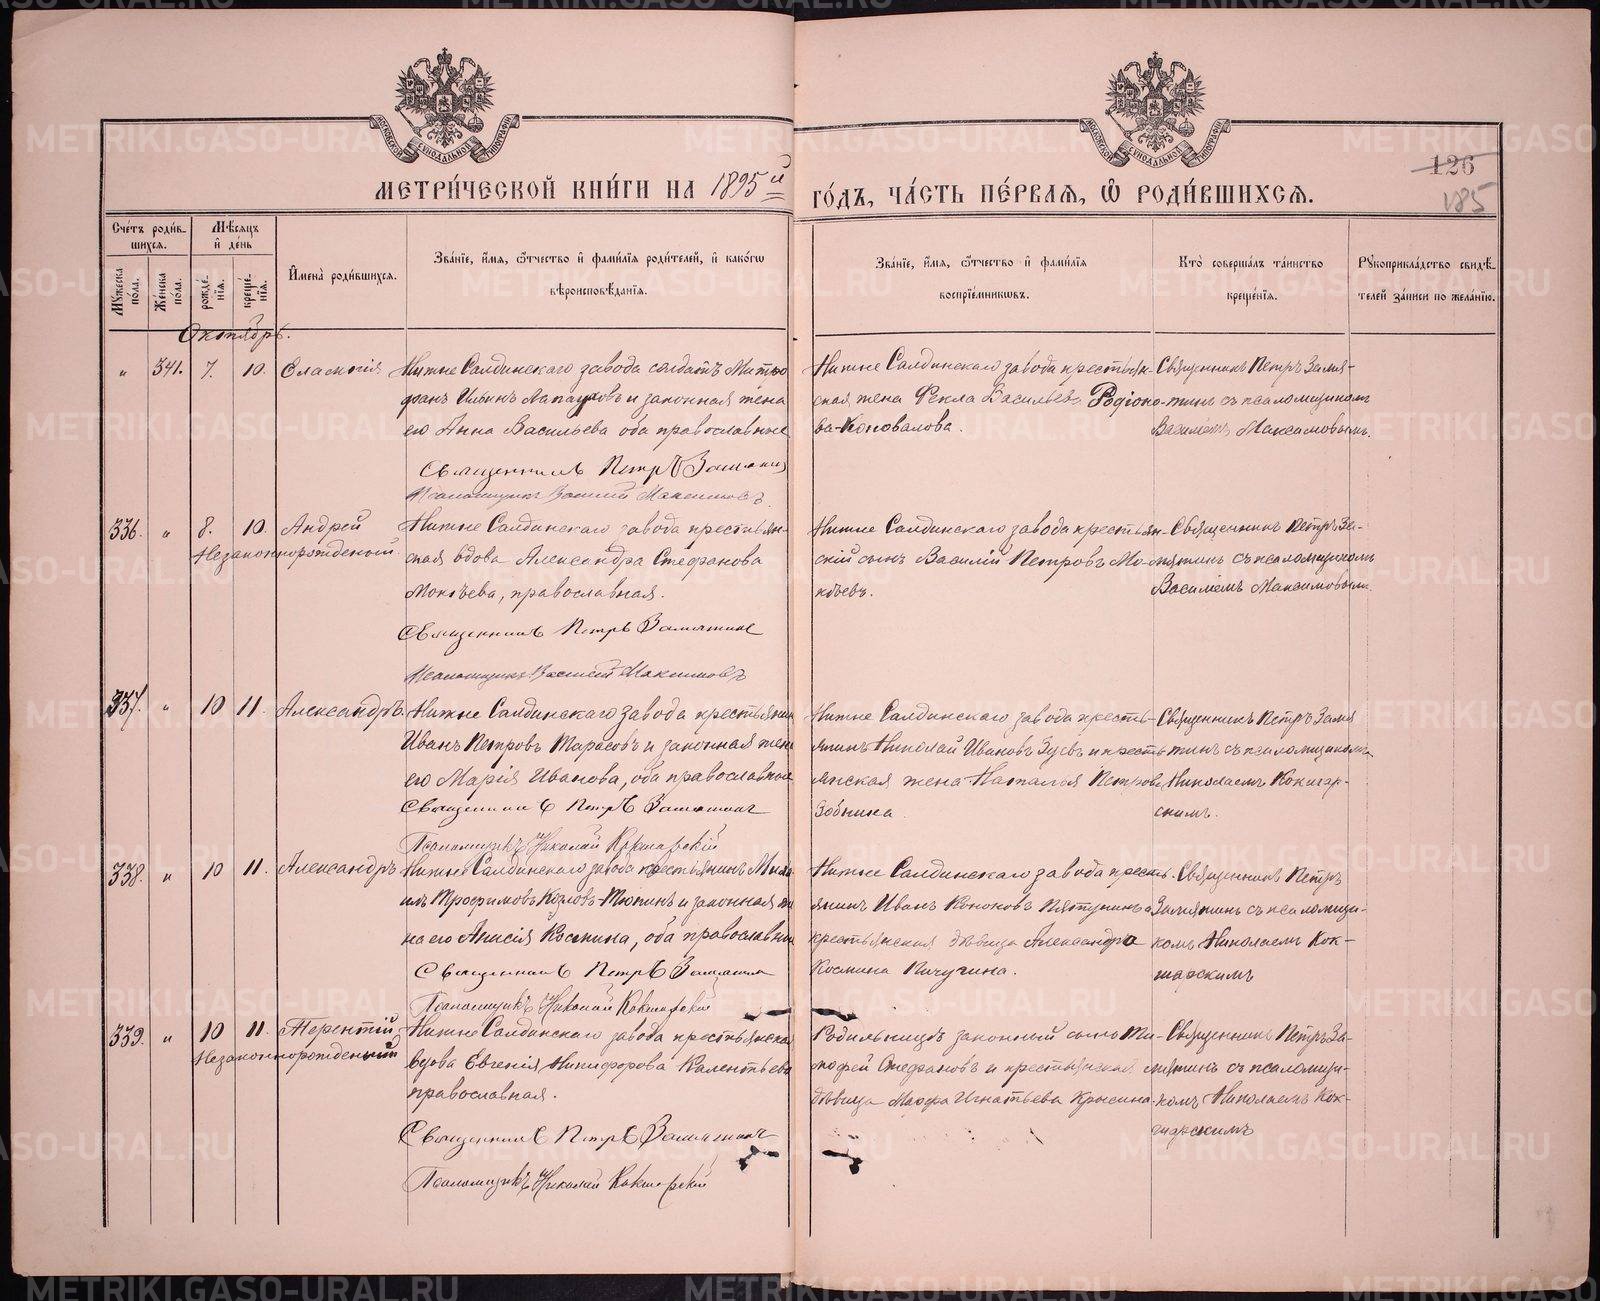 МЕТРИ́ЧЕСКОЙ КНИ́ГИ НА 1895й ГО́ДЪ, ЧА́СТЬ ПЕ́РВАЯ, Ѽ РОДИ́ВШИХСЯ.
126
185
Сче́тъ роди́в-
шихся.
Мѣ́сяцъ
и҆ де́нь
Мꙋ́жеска
по́ла.
Же́нска
по́ла.
рожде́-
нїя.
креще́-
нїя.
И҆мена̀ роди́вшихся.
Зва́нїе, и҆́мя, ѻ҆́тчество и҆ фами́лїя роди́телей, и҆ како́гѡ
вѣроисповѣ́данїя.
Зва́нїе, и҆́мя, ѻ҆́тчество и҆ фами́лїя
воспрїе́мникѡвъ.
Кто̀ соверша́лъ та́инство
креще́нїя.
Рꙋкоприкла́дство свидѣ́-
телей за́писи по жела́нїю.
Октябрь.
" 341. 7. 10.
Нижне Салдинскаго завода солдатъ Митро
фанъ Ильинъ Лапауховъ и законная жена
его Анна Васильева оба православные
Священникъ Петръ Замятин
Псаломщикъ Василій Максимовъ
Нижне Салдинскаго завода крестьян-
ская жена Фекла Васильева Родіоно-
ва-Коновалова.
Священникъ Петръ Замя-
тинъ съ псаломщикомъ
Василіемъ Максимовымъ.
336. " 8. 10. Андрей
Незаконнорожденный.
Нижне Салдинскаго завода крестьян-
ская вдова Александра Стефанова
Мокѣева, православная.
Священникъ Петръ Замятинъ
Псаломщикъ Василій Максимовъ
Нижне Салдинскаго завода крестьян-
скій сынъ Василій Петровъ Мо-
кѣевъ.
Священникъ Петръ За-
мятинъ съ псаломщикомъ
Василіемъ Максимовымъ.
337. " 10 11. Александръ.
Нижне Салдинскаго завода крестьянин
Иванъ Петровъ Тарасовъ и законная жена
его Марія Иванова, оба православные
Священникъ Петръ Замятинъ
Псаломщикъ Николай Кокшарскій
Нижне Салдинскаго завода кресть-
янинъ Николай Ивановъ Зуевъ и кресть
янская жена Наталья Петрова
Зобнина.
Священникъ Петръ Замя
тинъ съ псаломщикомъ
Николаемъ Кокшар-
скимъ.
338. " 10 11. Александръ
Нижне Салдинскаго завода крестьянинъ Миха
илъ Трофимовъ Козловъ-Тюкинъ и законная же
на его Анисія Космина, оба православны
Священникъ Петръ Замятин
Псаломщикъ Николай Кокшарскій
Нижне Салдинскаго завода кресть-
янинъ Иванъ Кононовъ и
крестьянская дѣвица Александра
Космина Пичугина.
Священникъ Петръ
Замятинъ съ псаломщи-
комъ Николаемъ Кок-
шарскимъ
339. " 10 11. Терентій
Незаконнорожденный
Нижне Салдинскаго завода крестьянская
вдова Евгенія Никифорова Калентьева
православная.
Священникъ Петръ Замятинъ
Псаломщикъ Николай Кокшарскій
Родильницы законный сынъ Ти-
мофей Стефановъ и крестьянская
дѣвица Марфа Игнатьева Крысина.
Священникъ Петръ За-
мятинъ съ псаломщи-
комъ Николаемъ Кок-
шарскимъ
METRIKI.GASO-URAL.RU